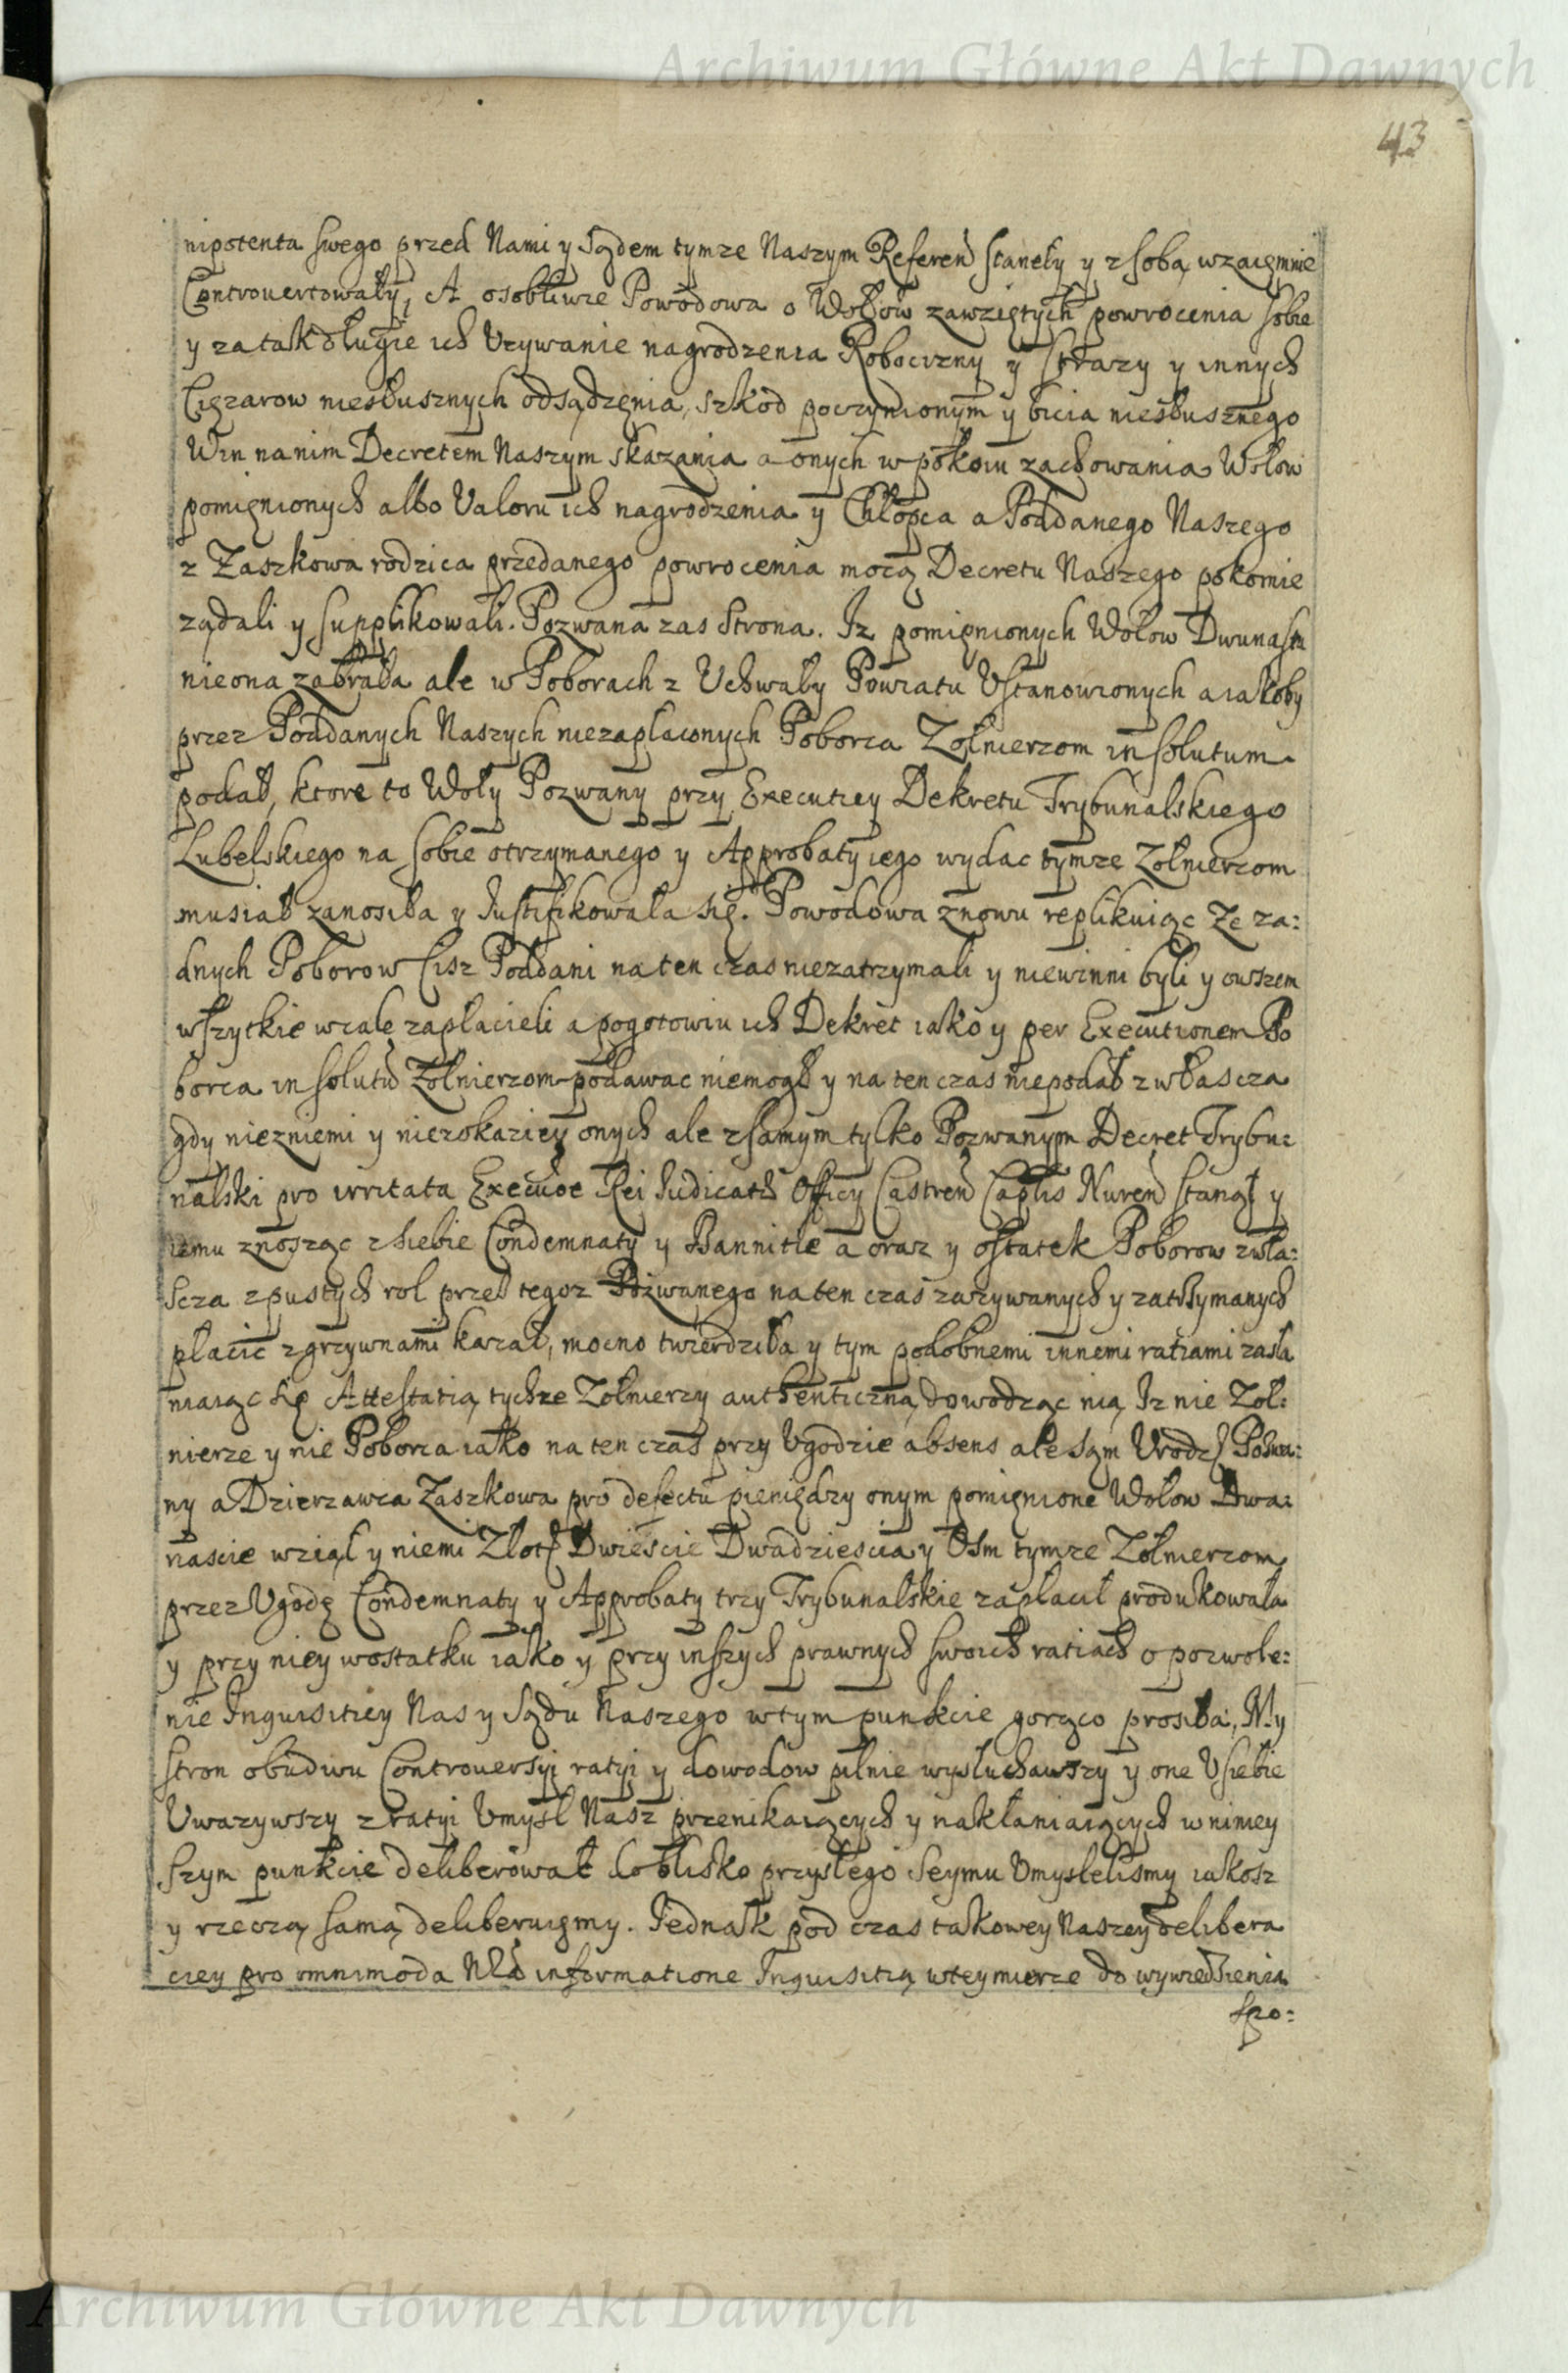 Archiwum Główne Akt Dawnych
43
nipotenta swego przed Nami y Sądem tymze Naszym Referen stanęły y z sobą wzaiemnie
Controuertowały, A osobliwie Powodowa o Wołow zawziętych powrocenia sobie
y za tak długie ich Uzywanie nagrodzenia Robocizny y Strazy y innych
Cięzarow niesłusznych odsądzenia, szkod poczynionym y bicia niesłusznego
Win na nim Decretem Naszym skazania a onych w pokoiu zachowania Wołow
pomienionych albo Valoru ich nagrodzenia y Chłopca a Poddanego Naszego
z Zaszkowa rodzica przedanego powrocenia mocą Decretu Naszego pokornie
ządali y supplikowali. Pozwana zas Strona. Iz pomienionych Wołow Dwunastu
nie ona zabrała ale w Poborach z Uchwały Powiatu Ustanowionych a iakoby
przez Poddanych Naszych niezapłaconych Poborca Zołnierzom in solutum
podał, ktore to Woły Pozwany przy Executiey Dekretu Trybunalskiego
Lubelskiego na sobie otrzymanego y Approbaty iego wydac tymze Zołnierzom
musiał zanosiła y Justifikowała się. Powodowa znowu replikuiąc Ze za:
dnych Poborow Cisz Poddani na ten czas niezatrzymali y niewinni byli y owszem
wszytkie wcale zapłacieli a pogotowiu ich Dekret iako y per Executionem Po
borca in solutu Zołnierzom podawac niemogł y na ten czas niepodał zwłascza
gdy niezniemi y niezokaziey onych ale z samym tylko Pozwanym Decret Trybu:
nalski pro irritata Execuoe Rei Iudicatæ Officy Castren Caplis Nuren stanął y
iemu znosząc z siebie Condemnaty y Bannitie a oraz y ostatek Poborow zwła:
scza z pustych rol przed tegoz Pozwanego na ten czas zazywanych y zatrzymanych
płacic z grzywnami kazał, mocno twierdziła y tym podobnemi innemi ratiami zasła
niaiąc się Attestatią tychze Zołnierzy authenticzną, dowodząc nią, Iz nie Zoł:
nierze y nie Poborca iako na ten czas przy Ugodzie absens ale sąm Urodz Pozwa:
ny a Dzierzawca Zaszkowa pro defectu pieniędzy onym pomienione Wołow Dwa:
nascie wziął y niemi Złot Dwiescie Dwadziescia y Osm tymze Zołnierzom
przez Ugodę Condemnaty y Approbaty trzy Trybunalskie zapłacił produkowała
y przy niey wostatku iako y przy inszych prawnych swoich ratiach o pozwole:
nie Inquisitiey Nas y Sądu Naszego w tym punkcie gorąco prosiła, My
stron obudwu Controuersyi ratyi y dowodow pilnie wysłuchawszy y one U siebie
Uwazywszy z ratyi Umysł Nasz przenikaiących y nakłaniaiących w niniey
szym punkcie deliberowac do blisko przyszłego Seymu Umyslelismy iakosz
y rzeczą samą deliberuięmy. Jednak pod czas takowey Naszey delibera
ciey pro omnimoda Nra informatione Inquisitią w tey mierze do wywiedzienia
spo:
Archiwum Główne Akt Dawnych